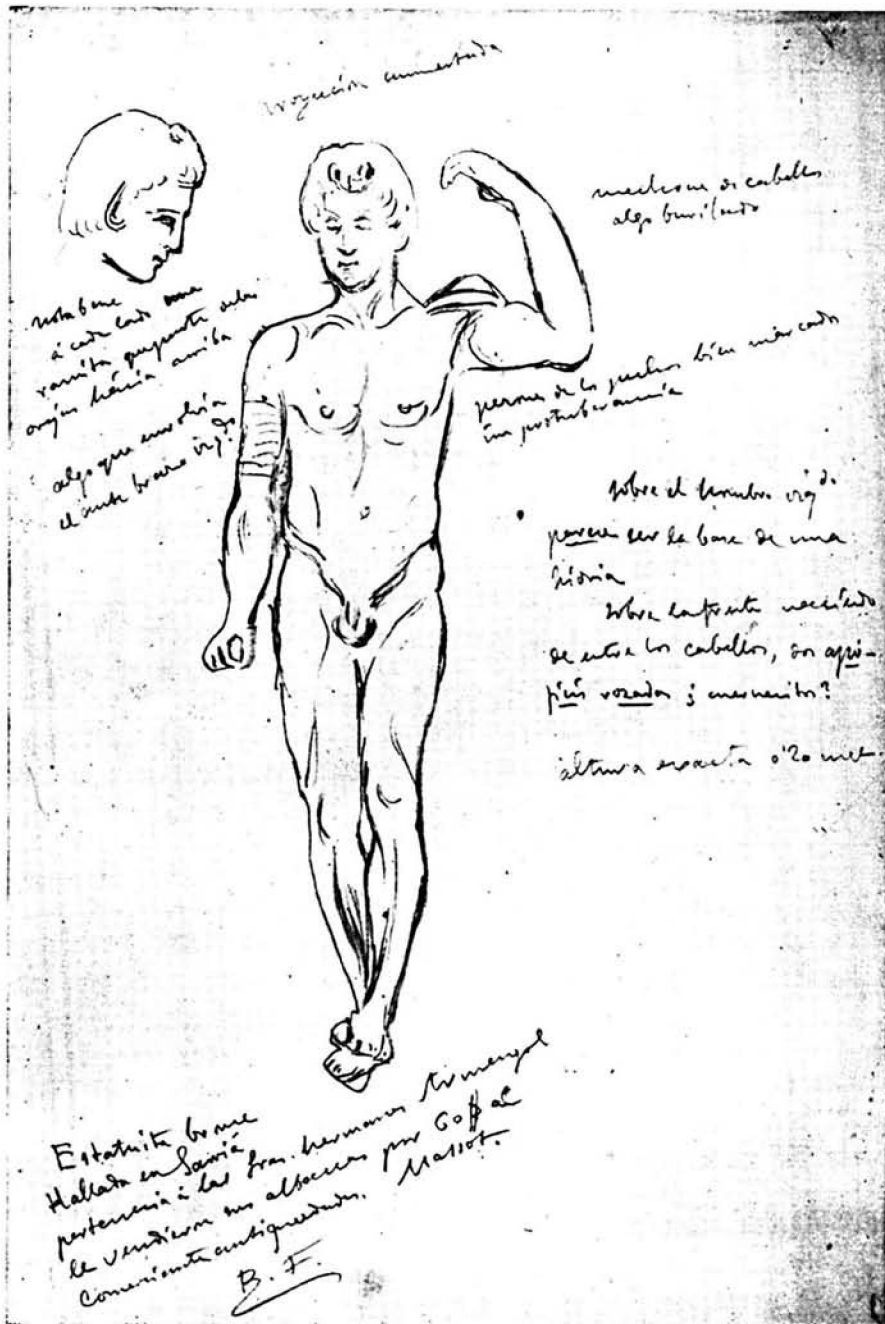 aumentada
mechones de cabellos
algo burilado
nota bene
á cada lado una
ramita pequeña sobre
orejas hácia arriba
algo que envolvia
el ante brazo izq.do
de los pechos bien marcados
sin protuberancia
sobre el hombro izq.do
parece ser la base de una
sobre la frente naciendo
de entre los cabellos, dos apén-
rozados ¿cuernecitos?
altura exacta 0'20 met.
Estatuita bronce
Hallada en Sarriá
pertenecia á las Sras. hermanas Armengol
la vendieron sus albaceas por 60 $ al
comerciante antiguedades. Massot.
B. F.